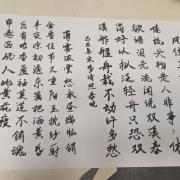 风住
梳头物是人非事事休
欲语泪先流闻说双溪春
尚好也拟泛轻舟只恐双
溪舴艋舟载不动许多愁
李清照
薄雾浓云愁永昼瑞脑销
金兽佳节又重阳玉枕纱厨
半夜凉初透东篱把酒黄昏
后有暗香盈袖莫道不销魂
帘卷西风人比黄花瘦